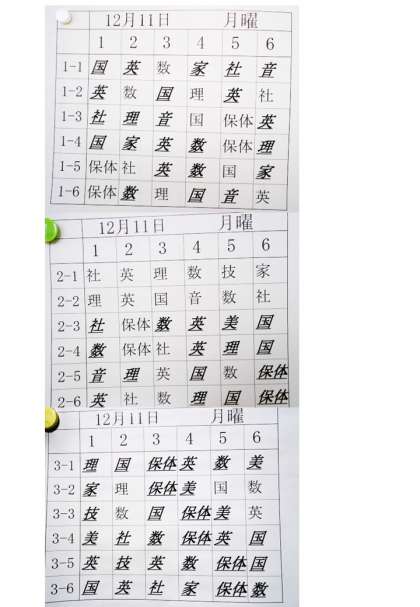 12月11日 月曜
1 2 3 4 5 6
1-1 国 英 数 家 社 音
1-2 英 数 国 理 英 社
1-3 社 理 音 国 保体 英
1-4 国 家 英 数 保体 理
1-5 保体 社 英 数 国 家
1-6 保体 数 理 国 音 英
12月11日 月曜
1 2 3 4 5 6
2-1 社 英 理 数 技 家
2-2 理 英 国 音 数 社
2-3 社 保体 数 英 美 国
2-4 数 保体 社 英 理 国
2-5 音 理 英 国 数 保体
2-6 英 社 数 理 国 保体
12月11日 月曜
1 2 3 4 5 6
3-1 理 国 保体 英 数 美
3-2 家 理 保体 美 国 数
3-3 技 数 国 保体 美 英
3-4 美 社 数 保体 英 国
3-5 英 技 英 数 保体 国
3-6 国 英 社 家 保体 数